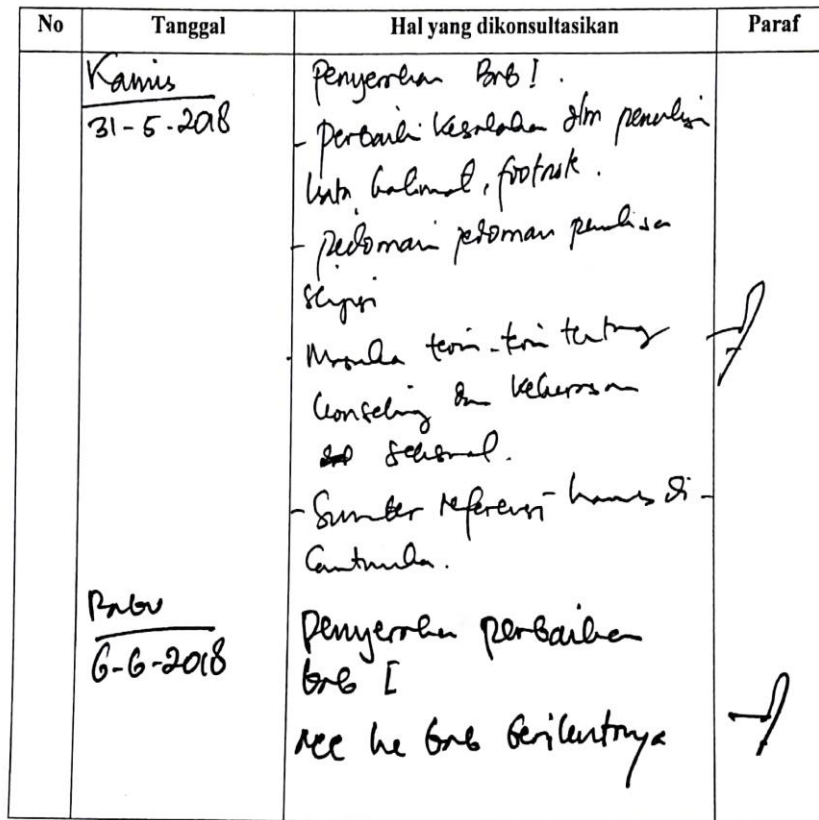 No Tanggal Hal yang dikonsultasikan Paraf
Kamis
31-5-2018
Penyerahan Bab I.
- Perbaiki kesalahan dlm penulisan
kata, kalimat, footnote.
- Pedomani pedoman penulisan
skripsi
- teori-teori tentang
konseling dan kekerasan
seksual.
- Sumber referensi harus di-
cantumkan.
Rabu
6-6-2018
Penyerahan perbaikan
bab I
Acc ke bab berikutnya